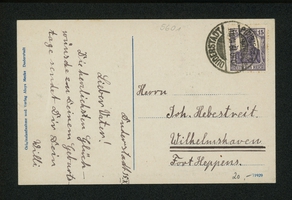 Duderstadt
Lieber Vater!
Die herzlichsten Glück-
wünsche zu Deinem Geburts-
tage sendet Dir Dein
Willi
Herrn
Joh. Hebestreit
Wilhelmshaven
Fort Heppens.
DUDERSTADT
15